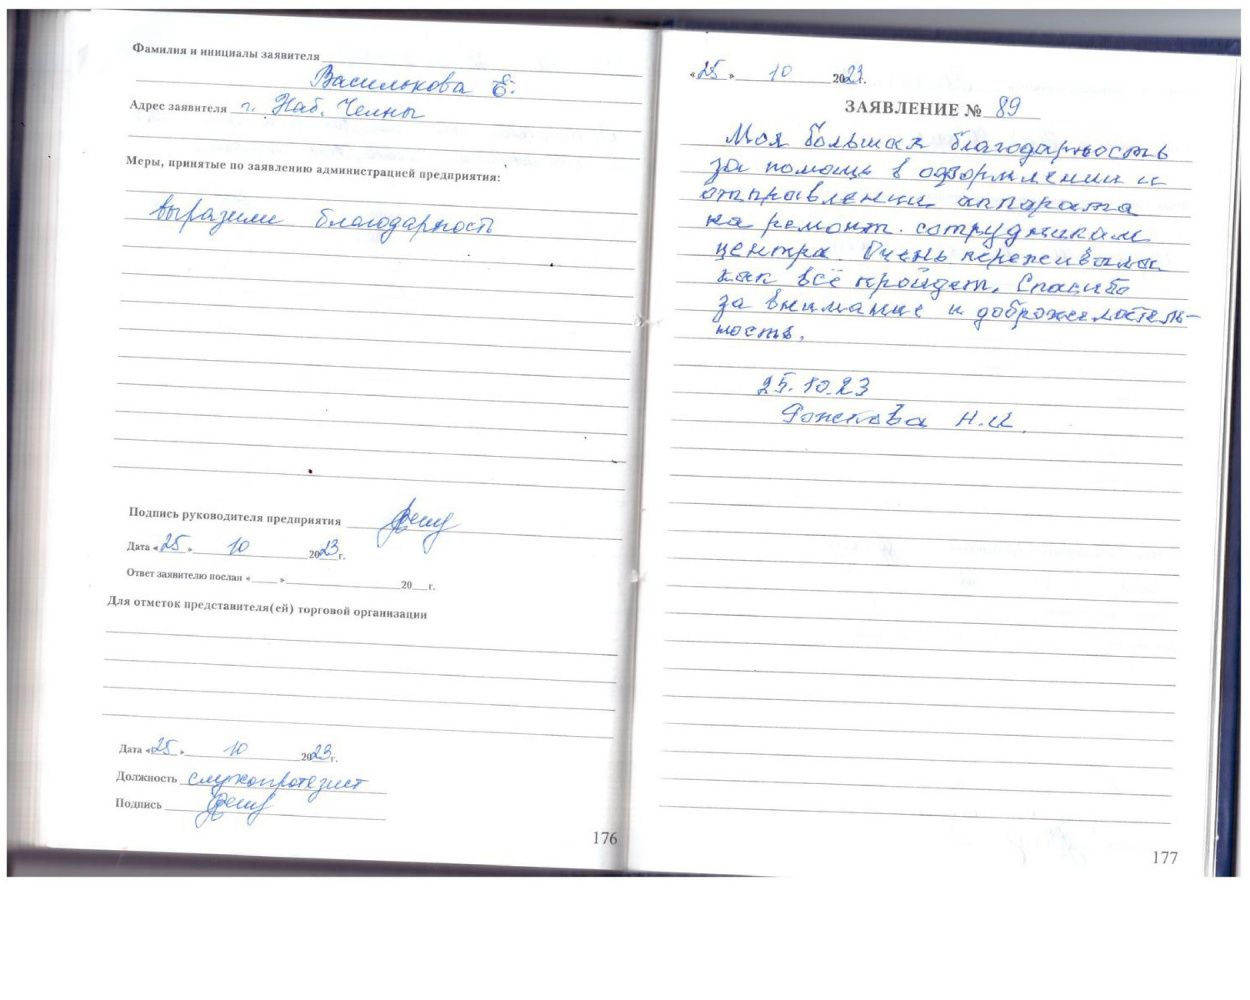 Фамилия и инициалы заявителя
Василькова Е.
Адрес заявителя г. Наб. Челны
Меры, принятые по заявлению администрацией предприятия:
выразили благодарность
Подпись руководителя предприятия
Дата «25» 10 2023 г.
Ответ заявителю послан «____» ____ 20__ г.
Для отметок представителя(ей) торговой организации
Дата «25» 10 2023 г.
Должность слухопротезист
Подпись
176
«25» 10 2023 г.
ЗАЯВЛЕНИЕ № 89
Моя большая благодарность
за помощь в оформлении и
отправлении аппарата
на ремонт. сотрудникам
центра. Очень переживала
как всё пройдет. Спасибо
за внимание и доброжелатель-
ность.
25.10.23
Н.И.
177